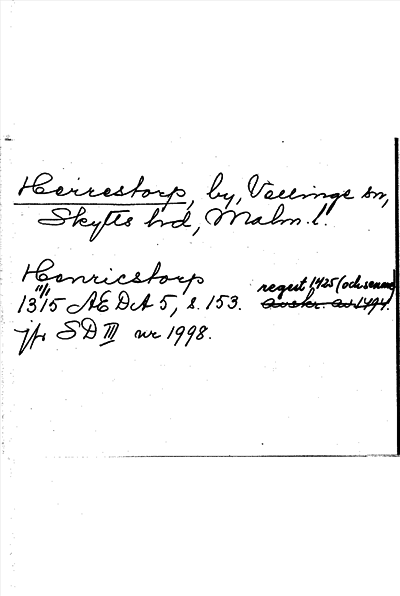 Herrestorp, by, Vellinge sn,
Skytts hd, Malm. l.
Henricstorp
1315 11/1 AEDA 5, s. 153. regest 1425 (och senare)
Avskr. av 1494.
jfr SD III nr 1998.